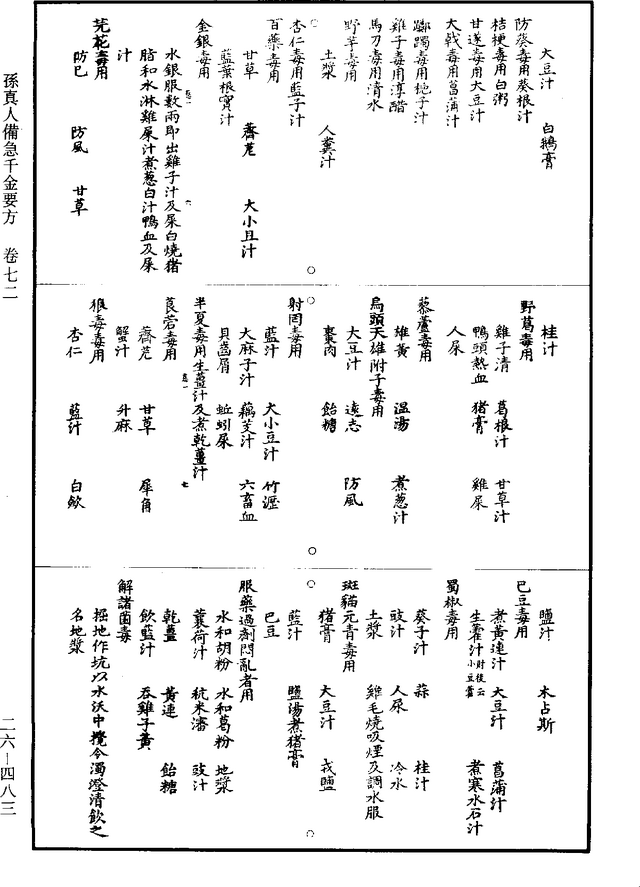 孫真人備急千金要方　卷七二
大豆汁　白鵝膏
防葵毒用葵根汁
桔梗毒用白粥
甘遂毒用大豆汁
大戟毒用菖蒲汁
躑躅毒用梔子汁
雞子毒用淳醋
馬刀毒用清水
野芋毒用
土漿　人糞汁
杏仁毒用藍子汁
百藥毒用
甘草　薺苨　大小豆汁
藍葉根實汁
金銀毒用
水銀服數兩即出雞子汁及屎白燒猪
脂和水淋雞屎汁煮葱白汁鴨血及屎
汁
芫花毒用
防巳　防風　甘草
桂汁
野葛毒用
雞子清　葛根汁　甘草汁
鴨頭熱血　猪膏　雞屎
人屎
藜蘆毒用
雄黃　溫湯　煮葱汁
烏頭天雄附子毒用
大豆汁　遠志　防風
棗肉　飴糖
射罔毒用
藍汁　大小豆汁　竹瀝
大麻子汁　藕芰汁　六畜血
貝齒屑　蚯蚓屎
半夏毒用生薑汁及煮乾薑汁
莨菪毒用
薺苨　甘草　犀角
蟹汁　升麻
狼毒毒用
杏仁　藍汁　白蘞
鹽汁　木占斯
巴豆毒用
煮黃連汁　大豆汁　菖蒲汁
生藿汁肘後云小豆藿　煮寒水石汁
蜀椒毒用
葵子汁　蒜　桂汁
豉汁　人屎　冷水
土漿　雞毛燒吸煙及調水服
斑貓元青毒用
猪膏　大豆汁　戎鹽
藍汁　鹽湯煮猪膏
巴豆
服藥過劑悶亂者用
水和胡粉　水和葛粉　地漿
蘘荷汁　秔米瀋　豉汁
乾薑　黃連　飴糖
飲藍汁　吞雞子黃
解諸菌毒
掘地作坑以水沃中攪令濁澄清飲之
名地漿
二六—四八三